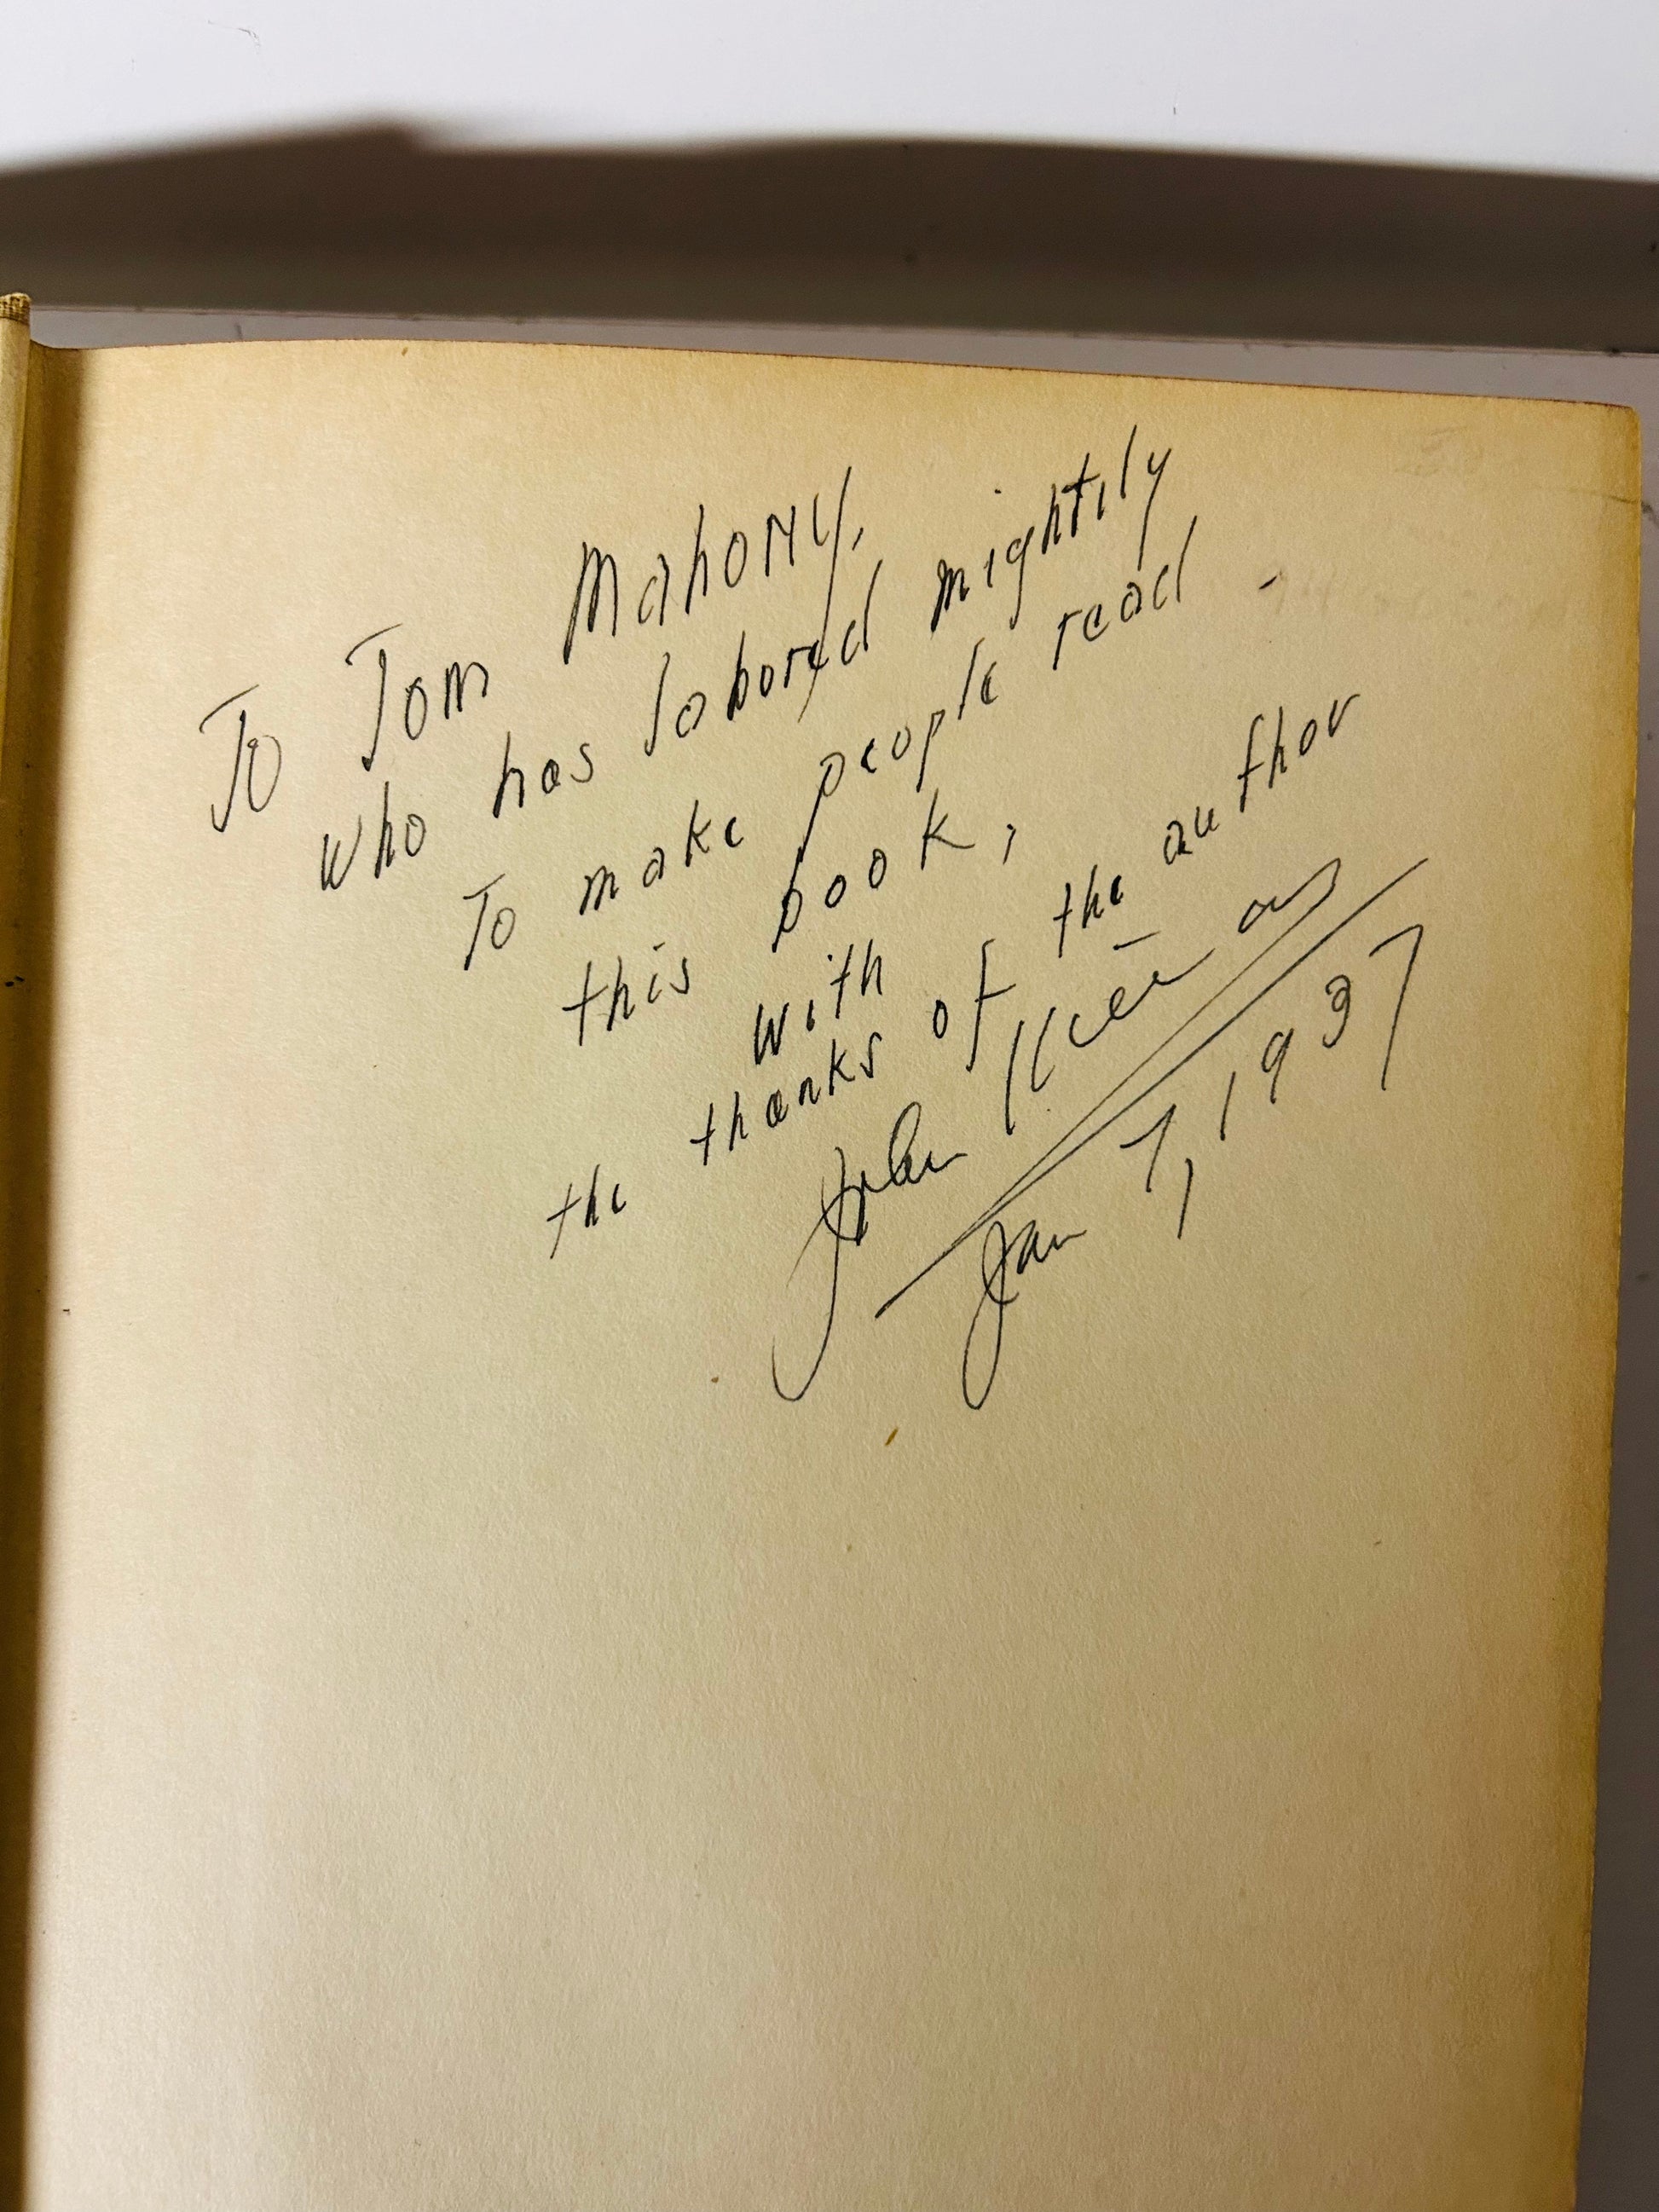 To Tom Mahony,
who has labored mightily
To make people read -
this book,
with
the thanks of the author
John
Jan 7, 1937